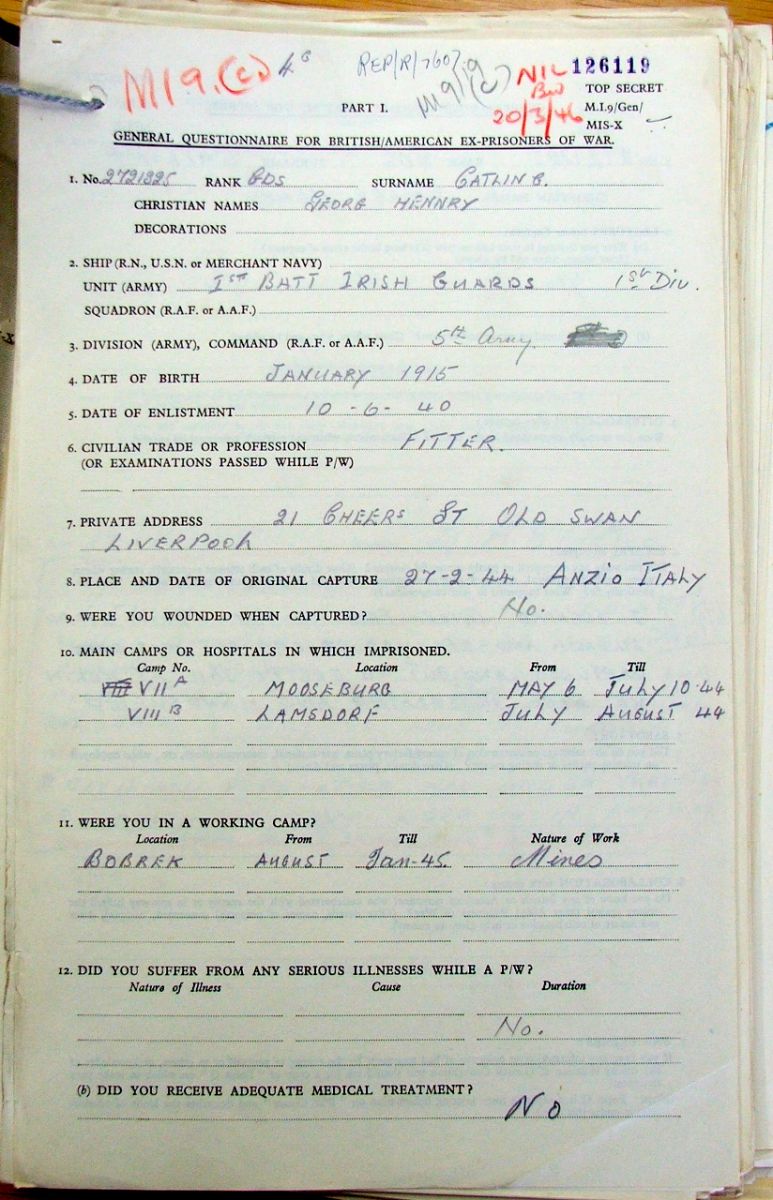 M19.(c) 4G REP/R/760 M19/(c) NIL 126119
TOP SECRET
PART I. Bw M.I.9/Gen/
20/3/46 MIS-X
GENERAL QUESTIONNAIRE FOR BRITISH/AMERICAN EX-PRISONERS OF WAR.
1. No. 2721325 RANK GDS SURNAME GATLING.
CHRISTIAN NAMES GEORG HENNRY
DECORATIONS
2. SHIP (R.N., U.S.N. or MERCHANT NAVY)
UNIT (ARMY) IST BATT IRISH GUARDS 1st Div.
SQUADRON (R.A.F. or A.A.F.)
3. DIVISION (ARMY), COMMAND (R.A.F. or A.A.F.) 5th Army.
4. DATE OF BIRTH JANUARY 1915
5. DATE OF ENLISTMENT 10-6-40
6. CIVILIAN TRADE OR PROFESSION FITTER.
(OR EXAMINATIONS PASSED WHILE P/W)
7. PRIVATE ADDRESS 21 CHEERS ST OLD SWAN
LIVERPOOL
8. PLACE AND DATE OF ORIGINAL CAPTURE 27-2-44 ANZIO ITALY
9. WERE YOU WOUNDED WHEN CAPTURED? No.
10. MAIN CAMPS OR HOSPITALS IN WHICH IMPRISONED.
Camp No. Location From Till
VII A MOOSEBURG MAY 6 JULY 10-44
VIII B LAMSDORF JULY AUGUST 44
11. WERE YOU IN A WORKING CAMP?
Location From Till Nature of Work
BOBREK AUGUST Jan-45 Mines
12. DID YOU SUFFER FROM ANY SERIOUS ILLNESSES WHILE A P/W?
Nature of Illness Cause Duration
No.
(b) DID YOU RECEIVE ADEQUATE MEDICAL TREATMENT?
No